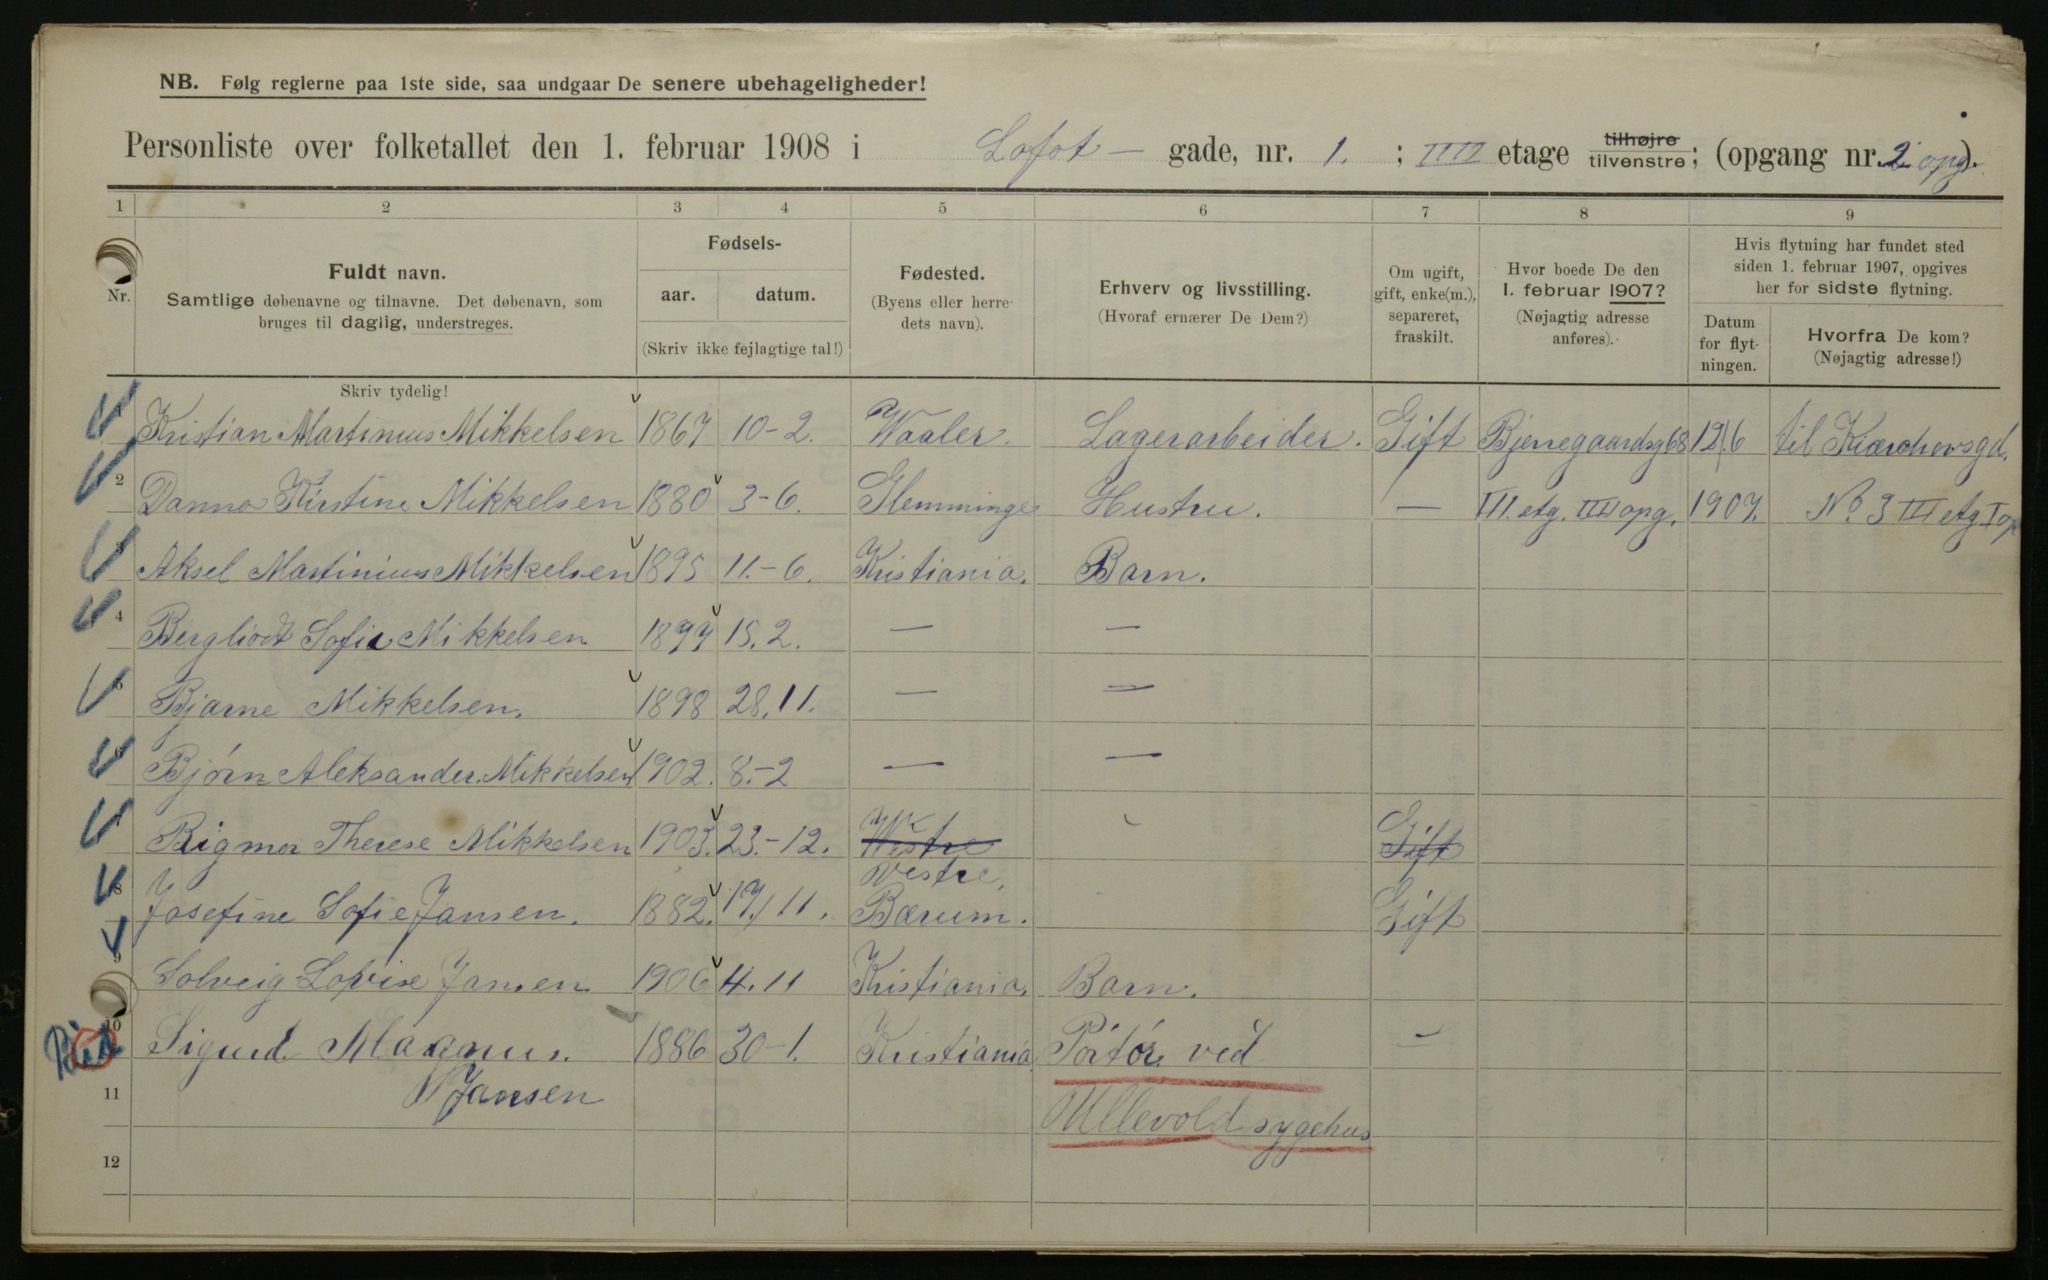 NB. Følg reglerne paa 1ste side, saa undgaar De senere ubehageligheder!
Personliste over folketallet den 1. februar 1908 i Lofot - gade, nr. 1. ; IIII etage tilhøjre tilvenstre; (opgang nr. 2 opg).
1 2 3 4 5 6 7 8 9
Nr.
Fuldt navn.
Samtlige døbenavne og tilnavne. Det døbenavn, som
bruges til daglig, understreges.
Skriv tydelig!
Fødsels-
aar. datum.
(Skriv ikke fejlagtige tal!)
Fødested.
(Byens eller herre-
dets navn).
Erhverv og livsstilling.
(Hvoraf ernærer De Dem?)
Om ugift,
gift, enke(m.),
separeret,
fraskilt.
Hvor boede De den
1. februar 1907?
(Nøjagtig adresse
anføres).
Hvis flytning har fundet sted
siden 1. februar 1907, opgives
her for sidste flytning.
Datum
for flyt-
ningen.
Hvorfra De kom?
(Nøjagtig adresse!)
Kristian Martinius Mikkelsen 1867 10-2. Waaler. Lagerarbeider. Gift Bjerregaardsg 68 12/6 til
2 Danna Kirstine Mikkelsen 1880 3-6. Glemminge Hustru. — III. etg. IIII opg. 1907. No. 3 III etg. I op
3 Aksel Martinius Mikkelsen 1895 11.-6. Kristiania. Barn.
4 Bergliodt Sofie Mikkelsen 1897 15.2. — —
5 Bjarne Mikkelsen. 1898 28.11. — —
6 Bjørn Aleksander. Mikkelsen 1902. 8.-2 — —
7 Rigmor Therese Mikkelsen 1903. 23.-12. Westre Gift
Vestre.
8 Josefine Sofie Jansen. 1882. 17/11. Bærum. Gift
9 Solveig Lovise Jansen 1906 4.11 Kristiania. Barn.
10 Sigurd Magnus. 1886 30-1. Kristiania Portør ved —
11 Jansen Ullevold sygehus
12